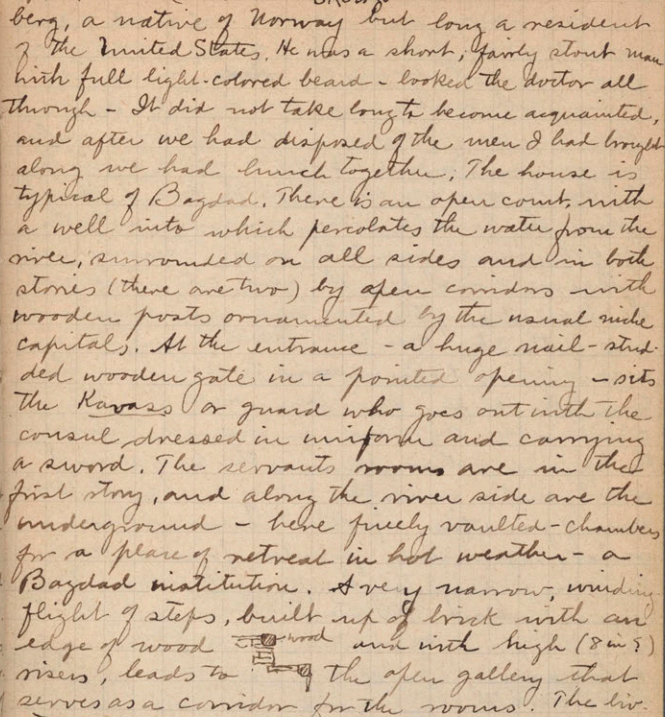 berg, a native of Norway but long a resident
of the United States. He was a short, fairly stout man
with full light-colored beard - looked the doctor all
through - It did not take long to become acquainted,
and after we had disposed of the men I had brought
along we had lunch together. The house is
typical of Bagdad. There is an open court, with
a well into which percolates the water from the
river, surrounded on all sides and in both
stories (there are two) by open corridors with
wooden posts ornamented by the usual niche
capitals. At the entrance - a huge nail-stud-
ded wooden gate in a pointed opening - sits
the Kavass or guard who goes out with the
consul, dressed in uniform and carrying
a sword. The servants rooms are in the
first story, and along the river side are the
underground - here finely vaulted - chambers
for a place of retreat in hot weather - a
Bagdad institution. A very narrow, winding
flight of steps, built up of brick with an
edge of wood wood and with high (8 in ?)
risers, leads to the open gallery that
serves as a corridor for the rooms. The liv-